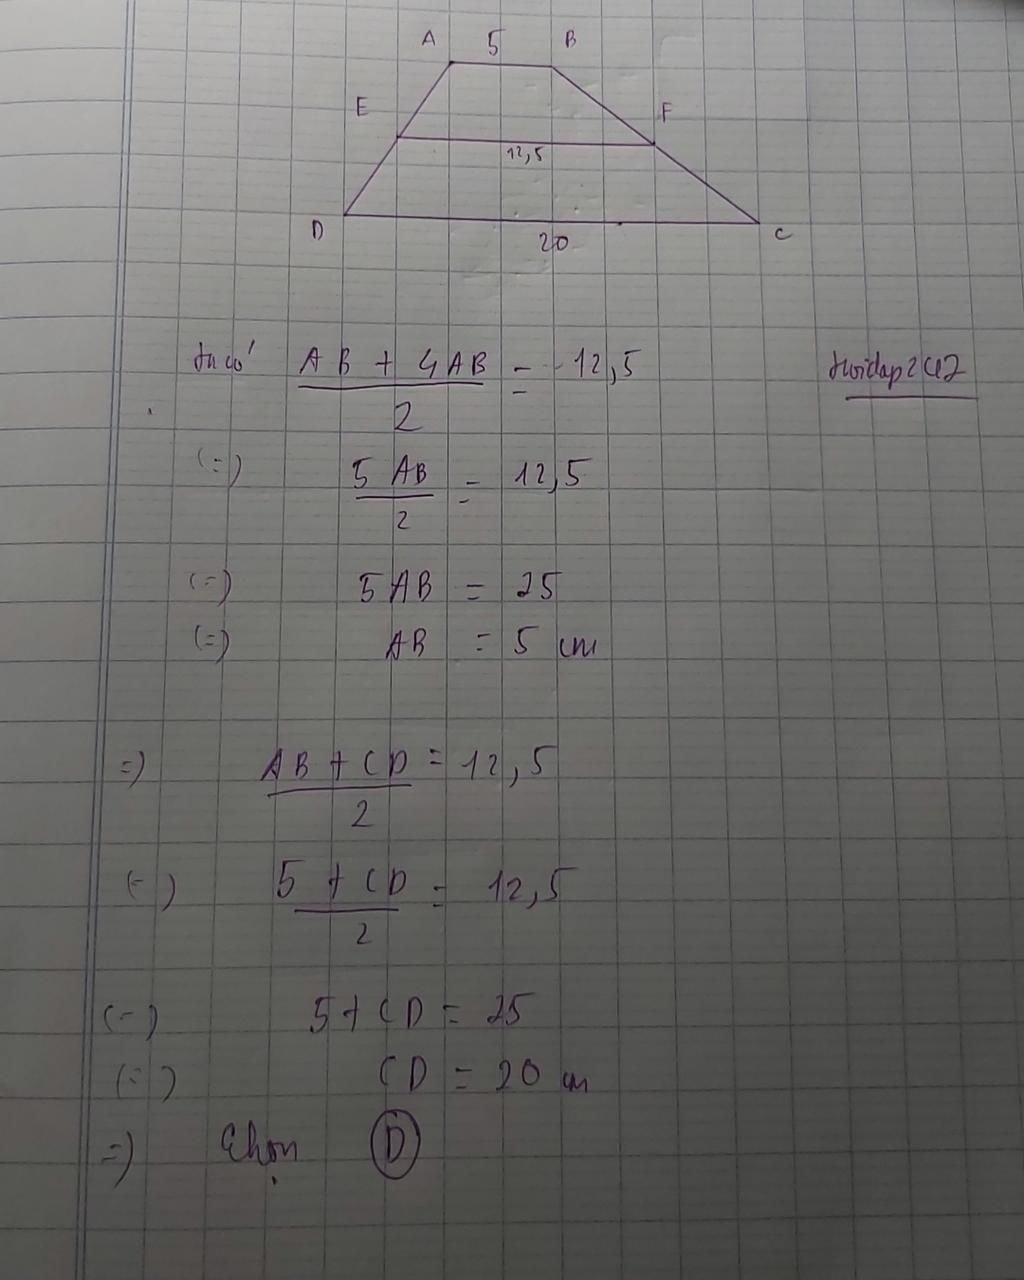 A 5 B
E F
12,5
D C
20
ta có AB + 4AB / 2 = 12,5
(=) 5 AB / 2 = 12,5
(=) 5AB = 25
(=) AB = 5 cm
=) AB + CD / 2 = 12,5
(=) 5 + CD / 2 = 12,5
(=) 5 + CD = 25
(=) CD = 20 cm
=) Chọn D